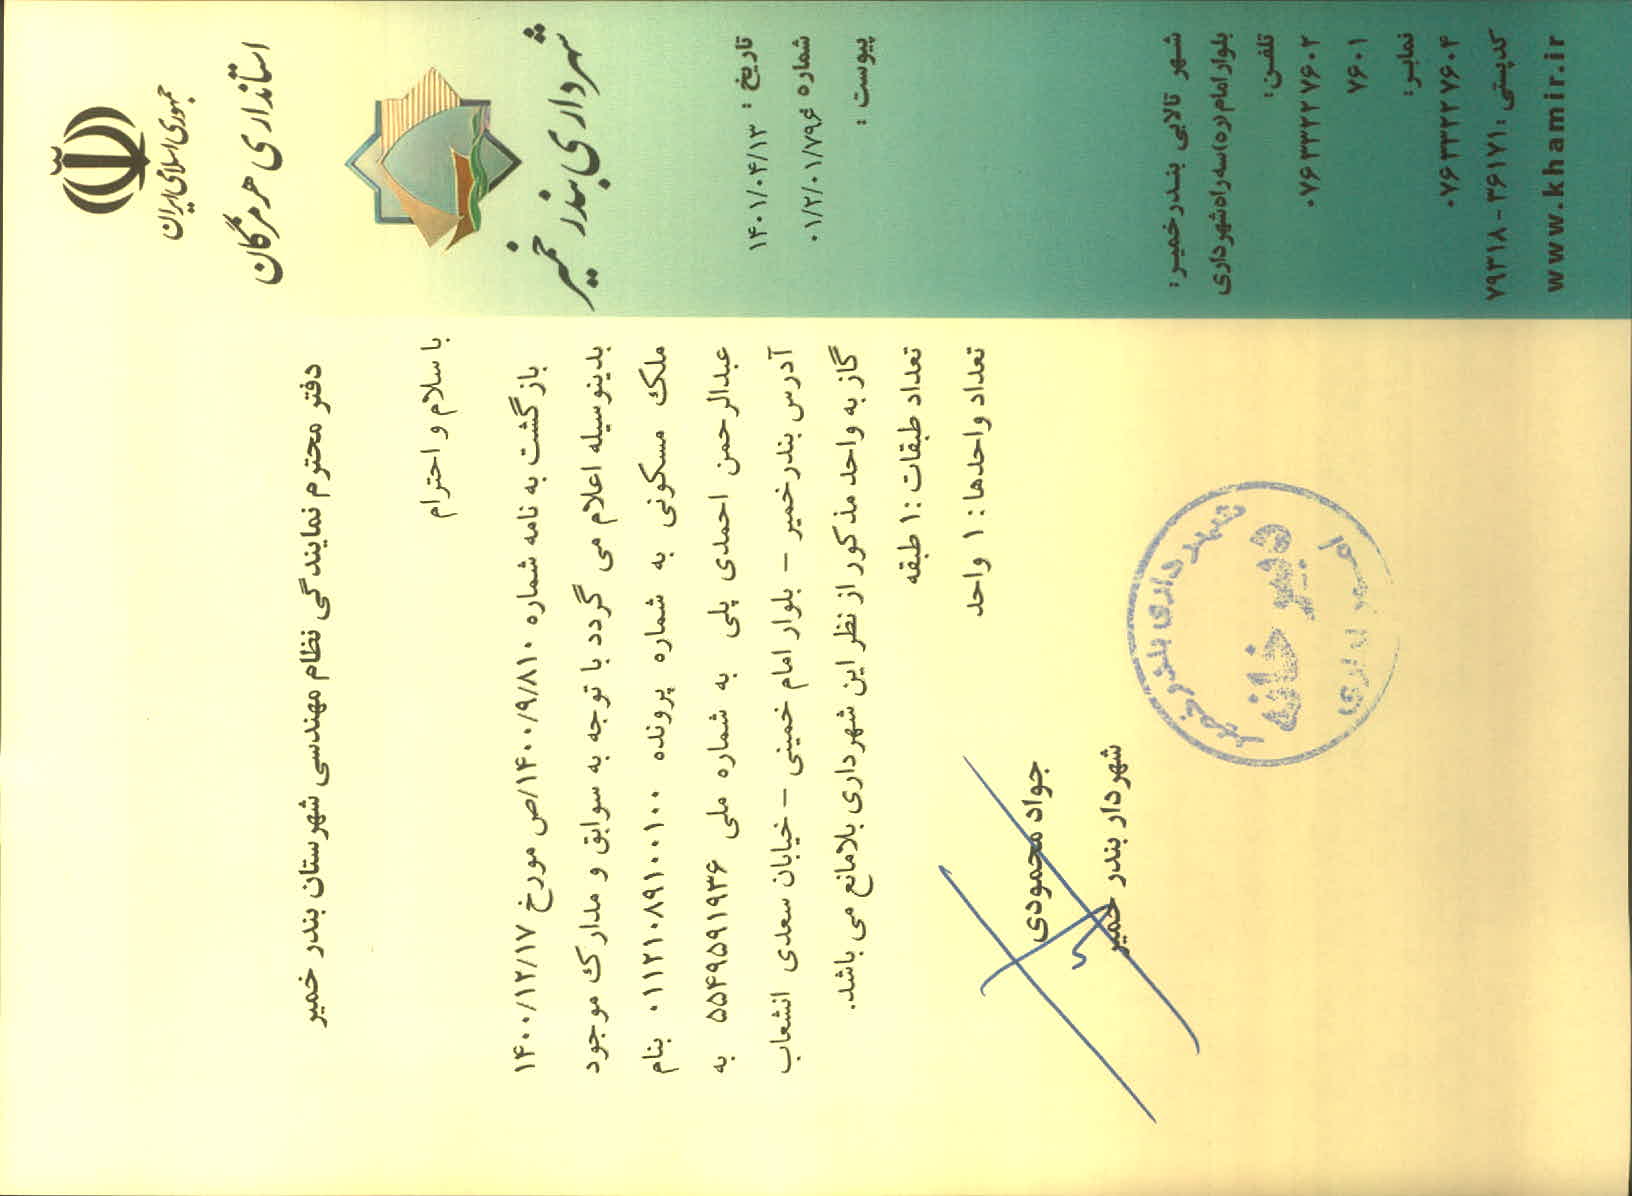 جمهوری اسلامی ایران
استانداری هرمزگان
شهرداری بندر خمیر
تاریخ : ۱۴۰۱/۰۴/۱۳
شماره : ۰۱/۲/۰۱/۷۹۶
پیوست :
دفتر محترم نمایندگی نظام مهندسی شهرستان بندر خمیر
با سلام و احترام
بازگشت به نامه شماره ۱۴۰۰/۹/۸۱۰/ص مورخ ۱۴۰۰/۱۲/۱۷
بدینوسیله اعلام می گردد با توجه به سوابق و مدارک موجود
ملک مسکونی به شماره پرونده ۰۱۱۲۱۰۸۹۱۰۰۱۰۰ بنام
عبدالرحمن احمدی پلی به شماره ملی ۵۵۴۹۵۹۱۹۳۶ به
آدرس بندرخمیر – بلوار امام خمینی – خیابان سعدی انشعاب
گاز به واحد مذکور از نظر این شهرداری بلامانع می باشد.
تعداد طبقات : ۱ طبقه
تعداد واحدها : ۱ واحد
جواد محمودی
شهردار بندر خمیر
شهرداری بندر خمیر
دبیرخانه
شهر تالابی بندرخمیر:
بلوار امام (ره) سه راه شهرداری
تلفن:
۰۷۶۳۳۲۲۷۶۰۲
۷۶۰۱
نمابر:
۰۷۶۳۳۲۲۷۶۰۴
کدپستی : ۳۶۱۷۱ - ۷۹۳۱۸
www.khamir.ir